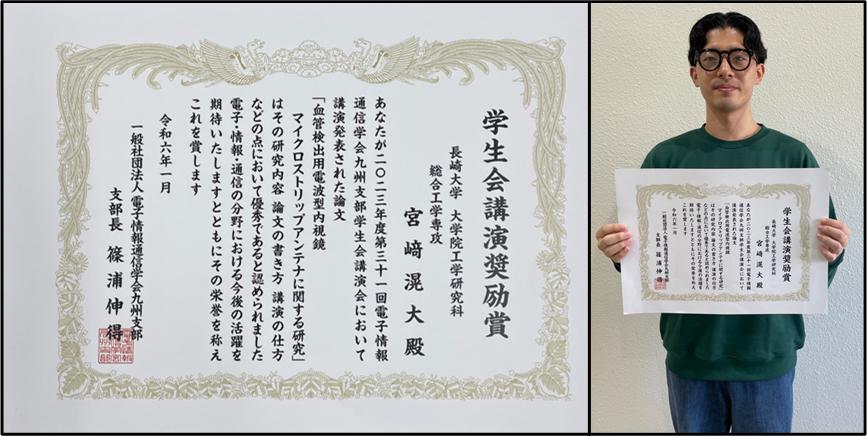 学生会講演奨励賞
長崎大学 大学院工学研究科
総合工学専攻
宮﨑滉大殿
あなたが二〇二三年度第三十一回電子情報
通信学会九州支部学生会講演会において
講演発表された論文
「血管検出用電波型内視鏡
マイクロストリップアンテナに関する研究」
はその研究内容 論文の書き方 講演の仕方
などの点において優秀であると認められました
電子・情報・通信の分野における今後の活躍を
期待いたしますとともにその栄誉を称え
これを賞します
令和六年一月
一般社団法人 電子情報通信学会九州支部
支部長 篠浦伸得
学生会講演奨励賞
長崎大学 大学院工学研究科
総合工学専攻
宮﨑滉大殿
あなたが二〇二三年度第三十一回電子情報
通信学会九州支部学生会講演会において
講演発表された論文
「血管検出用電波型内視鏡
マイクロストリップアンテナに関する研究」
はその研究内容 論文の書き方 講演の仕方
などの点において優秀であると認められました
電子・情報・通信の分野における今後の活躍を
期待いたしますとともにその栄誉を称え
これを賞します
令和六年一月
一般社団法人 電子情報通信学会九州支部
支部長 篠浦伸得